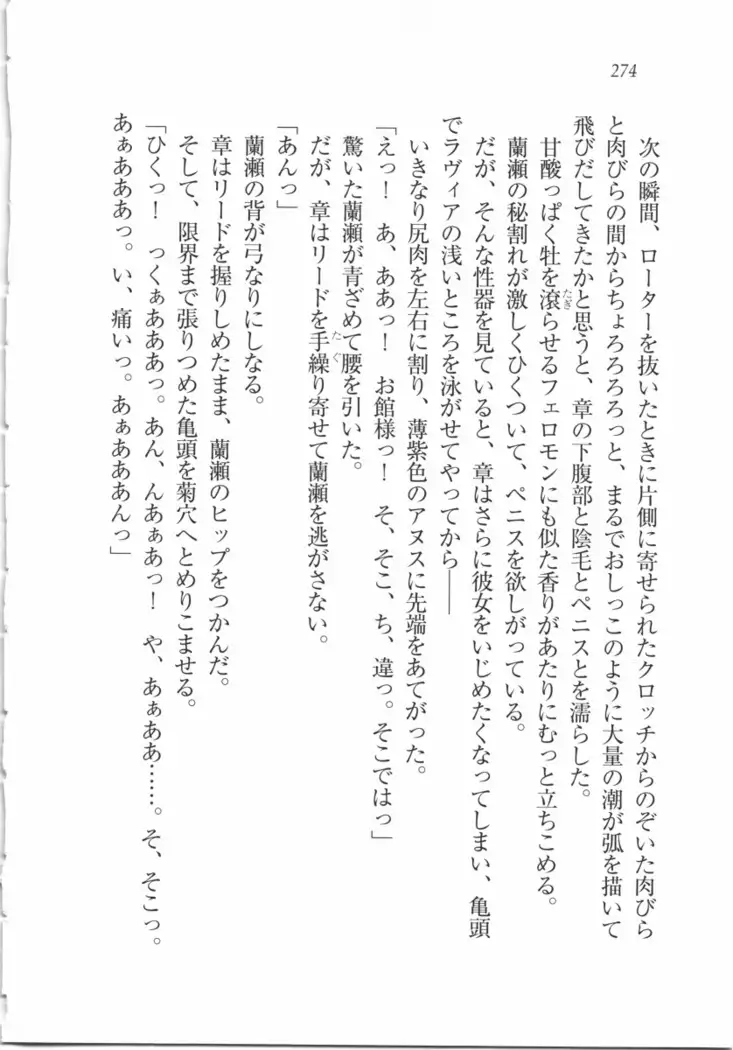 274
次の瞬間、ローターを抜いたときに片側に寄せられたクロッチからのぞいた肉びら
と肉びらの間からちょろろろろっと、まるでおしっこのように大量の潮が弧を描いて
飛びだしてきたかと思うと、章の下腹部と陰毛とペニスとを濡らした。
甘酸っぱく牡を滾らせるフェロモンにも似た香りがあたりにむっと立ちこめる。
たぎ
蘭瀬の秘割れが激しくひくついて、ペニスを欲しがっている。
だが、そんな性器を見ていると、章はさらに彼女をいじめたくなってしまい、亀頭
でラヴィアの浅いところを泳がせてやってから――
いきなり尻肉を左右に割り、薄紫色のアヌスに先端をあてがった。
「えっ！　あ、ああっ！　お館様っ！　そ、そこ、ち、違っ。そこではっ」
驚いた蘭瀬が青ざめて腰を引いた。
だが、章はリードを手繰り寄せて蘭瀬を逃がさない。
たぐ
「あんっ」
蘭瀬の背が弓なりにしなる。
章はリードを握りしめたまま、蘭瀬のヒップをつかんだ。
そして、限界まで張りつめた亀頭を菊穴へとめりこませる。
「ひくっ！　っくぁあああっ。あん、んあぁあっ！　や、あぁああ……。そ、そこっ。
あぁあああっ。い、痛いっ。あぁあああんっ」